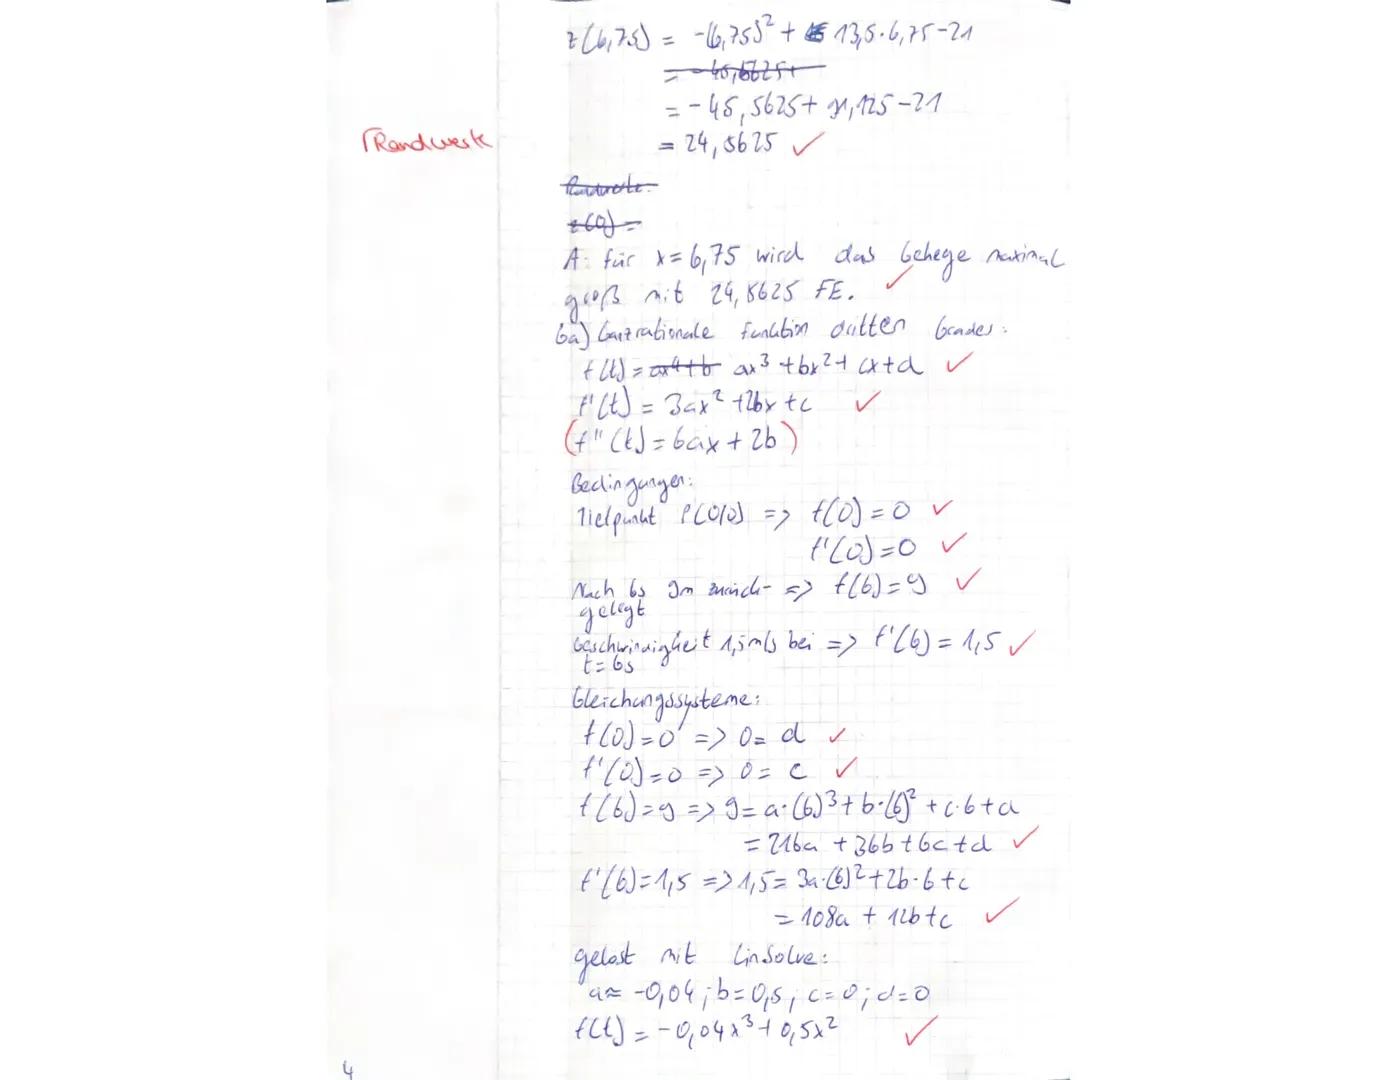 z(6,75) = -(6,75)² + 13,5·6,75-21
= -45,5625+
= -45,5625+ 91,125-21
= 24,5625 ✓
Γ Randwerte
Randwerte:
z(0) =
A: für x=6,75 wird das Gehege maximal
groß mit 24,5625 FE. ✓
6a) Ganzrationale Funktion dritten Grades:
f(t) = ax⁴+b ax³+bx²+cx+d ✓
f'(t) = 3ax²+2bx+c ✓
(f''(t) = 6ax+2b)
Bedingungen:
Tiefpunkt P(0|0) => f(0)=0 ✓
f'(0)=0 ✓
Nach 6s 9m zurück- => f(6)=9 ✓
gelegt
Geschwindigkeit 1,5m/s bei => f'(6)=1,5 ✓
t=6s
Gleichungssysteme:
f(0)=0 => 0=d ✓
f'(0)=0 => 0=c ✓
f(6)=9 => 9=a·(6)³+b·(6)²+c·6+d
=216a+36b+6c+d ✓
f'(6)=1,5 => 1,5=3a·(6)²+2b·6+c
=108a+12b+c ✓
gelöst mit LinSolve:
a≈-0,04; b=0,5; c=0; d=0
f(t)=-0,04x³+0,5x² ✓
4